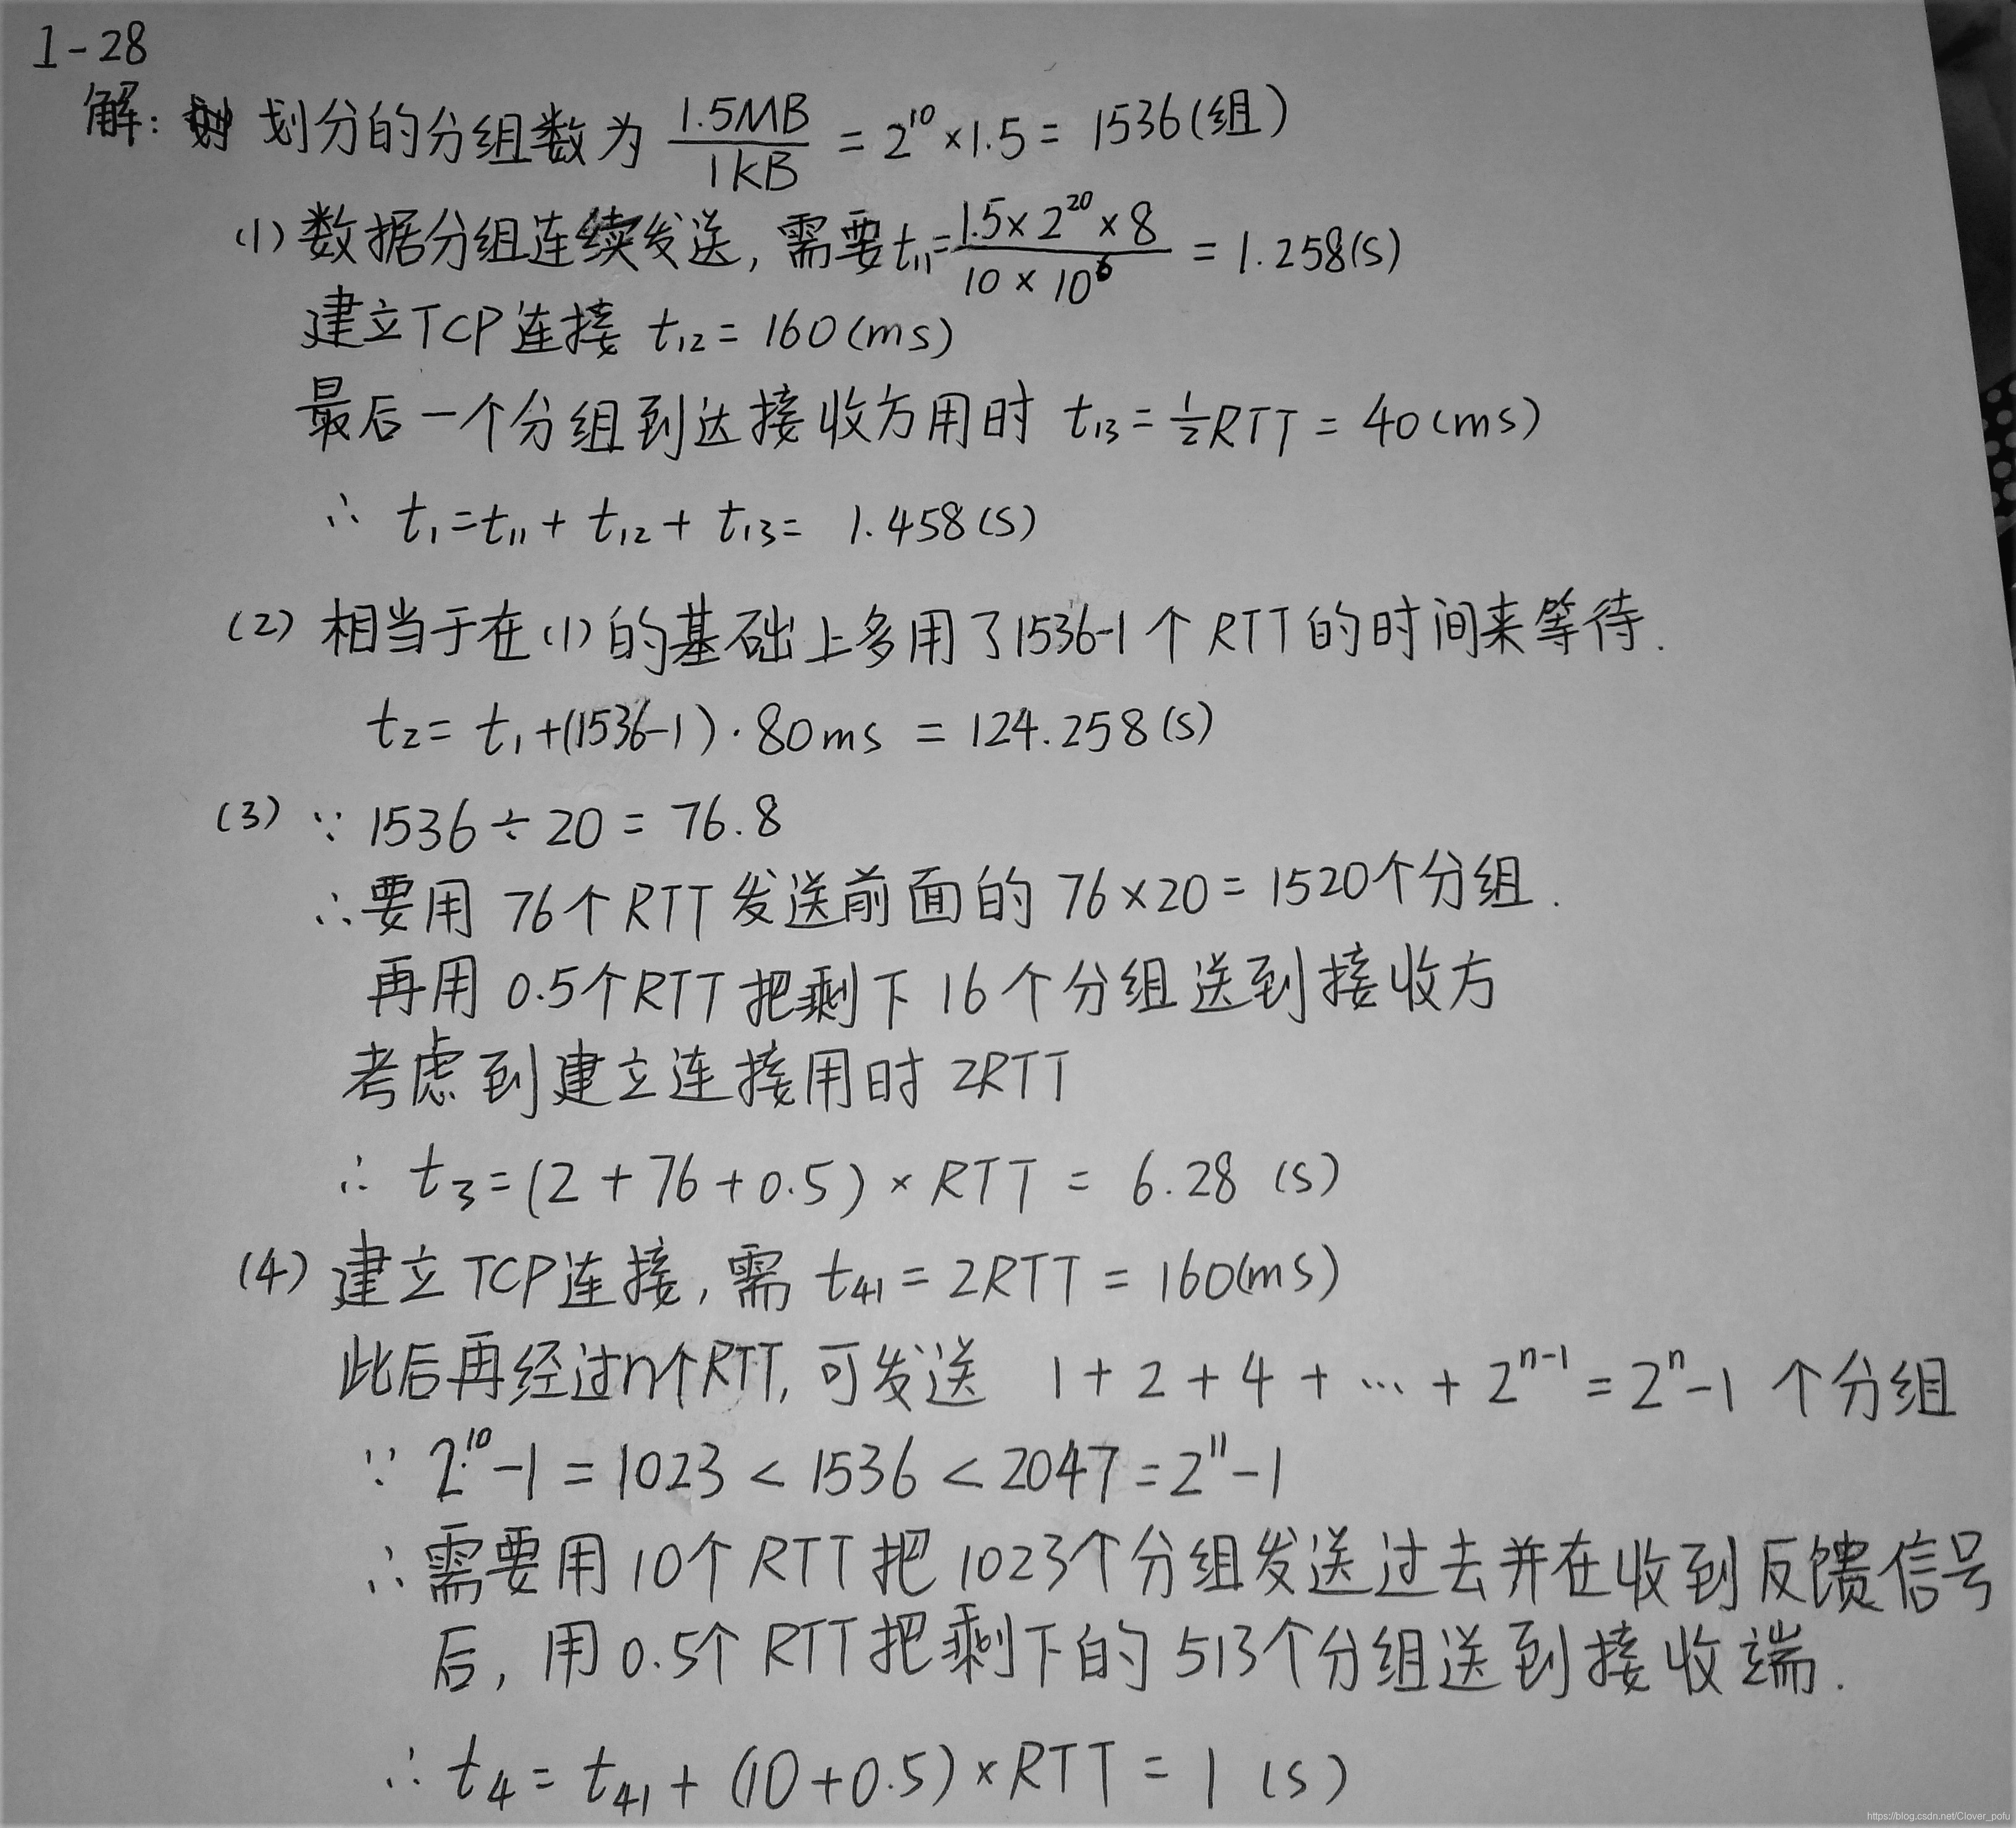 1-28
解: 划分的分组数为 1.5MB/1kB = 2^10 × 1.5 = 1536(组)
(1) 数据分组连续发送, 需要 t₁₁ = 1.5×2^20×8/10×10^6 = 1.258(s)
建立TCP连接 t₁₂ = 160(ms)
最后一个分组到达接收方用时 t₁₃ = ½RTT = 40(ms)
∴ t₁ = t₁₁ + t₁₂ + t₁₃ = 1.458(s)
(2) 相当于在(1)的基础上多用了1536-1个RTT的时间来等待.
t₂ = t₁+(1536-1)·80ms = 124.258(s)
(3) ∵ 1536÷20 = 76.8
∴要用 76个RTT发送前面的 76×20 = 1520个分组.
再用 0.5个RTT把剩下16个分组送到接收方
考虑到建立连接用时 2RTT
∴ t₃ = (2+76+0.5)×RTT = 6.28 (s)
(4) 建立TCP连接, 需 t₄₁ = 2RTT = 160(ms)
此后再经过n个RTT, 可发送 1+2+4+…+2^(n-1) = 2^n-1 个分组
∵ 2^10-1 = 1023 < 1536 < 2047 = 2^11-1
∴需要用10个RTT把1023个分组发送过去并在收到反馈信号
后, 用0.5个RTT把剩下的513个分组送到接收端.
∴ t₄ = t₄₁ + (10+0.5)×RTT = 1 (s)
https://blog.csdn.net/Clover_pofu